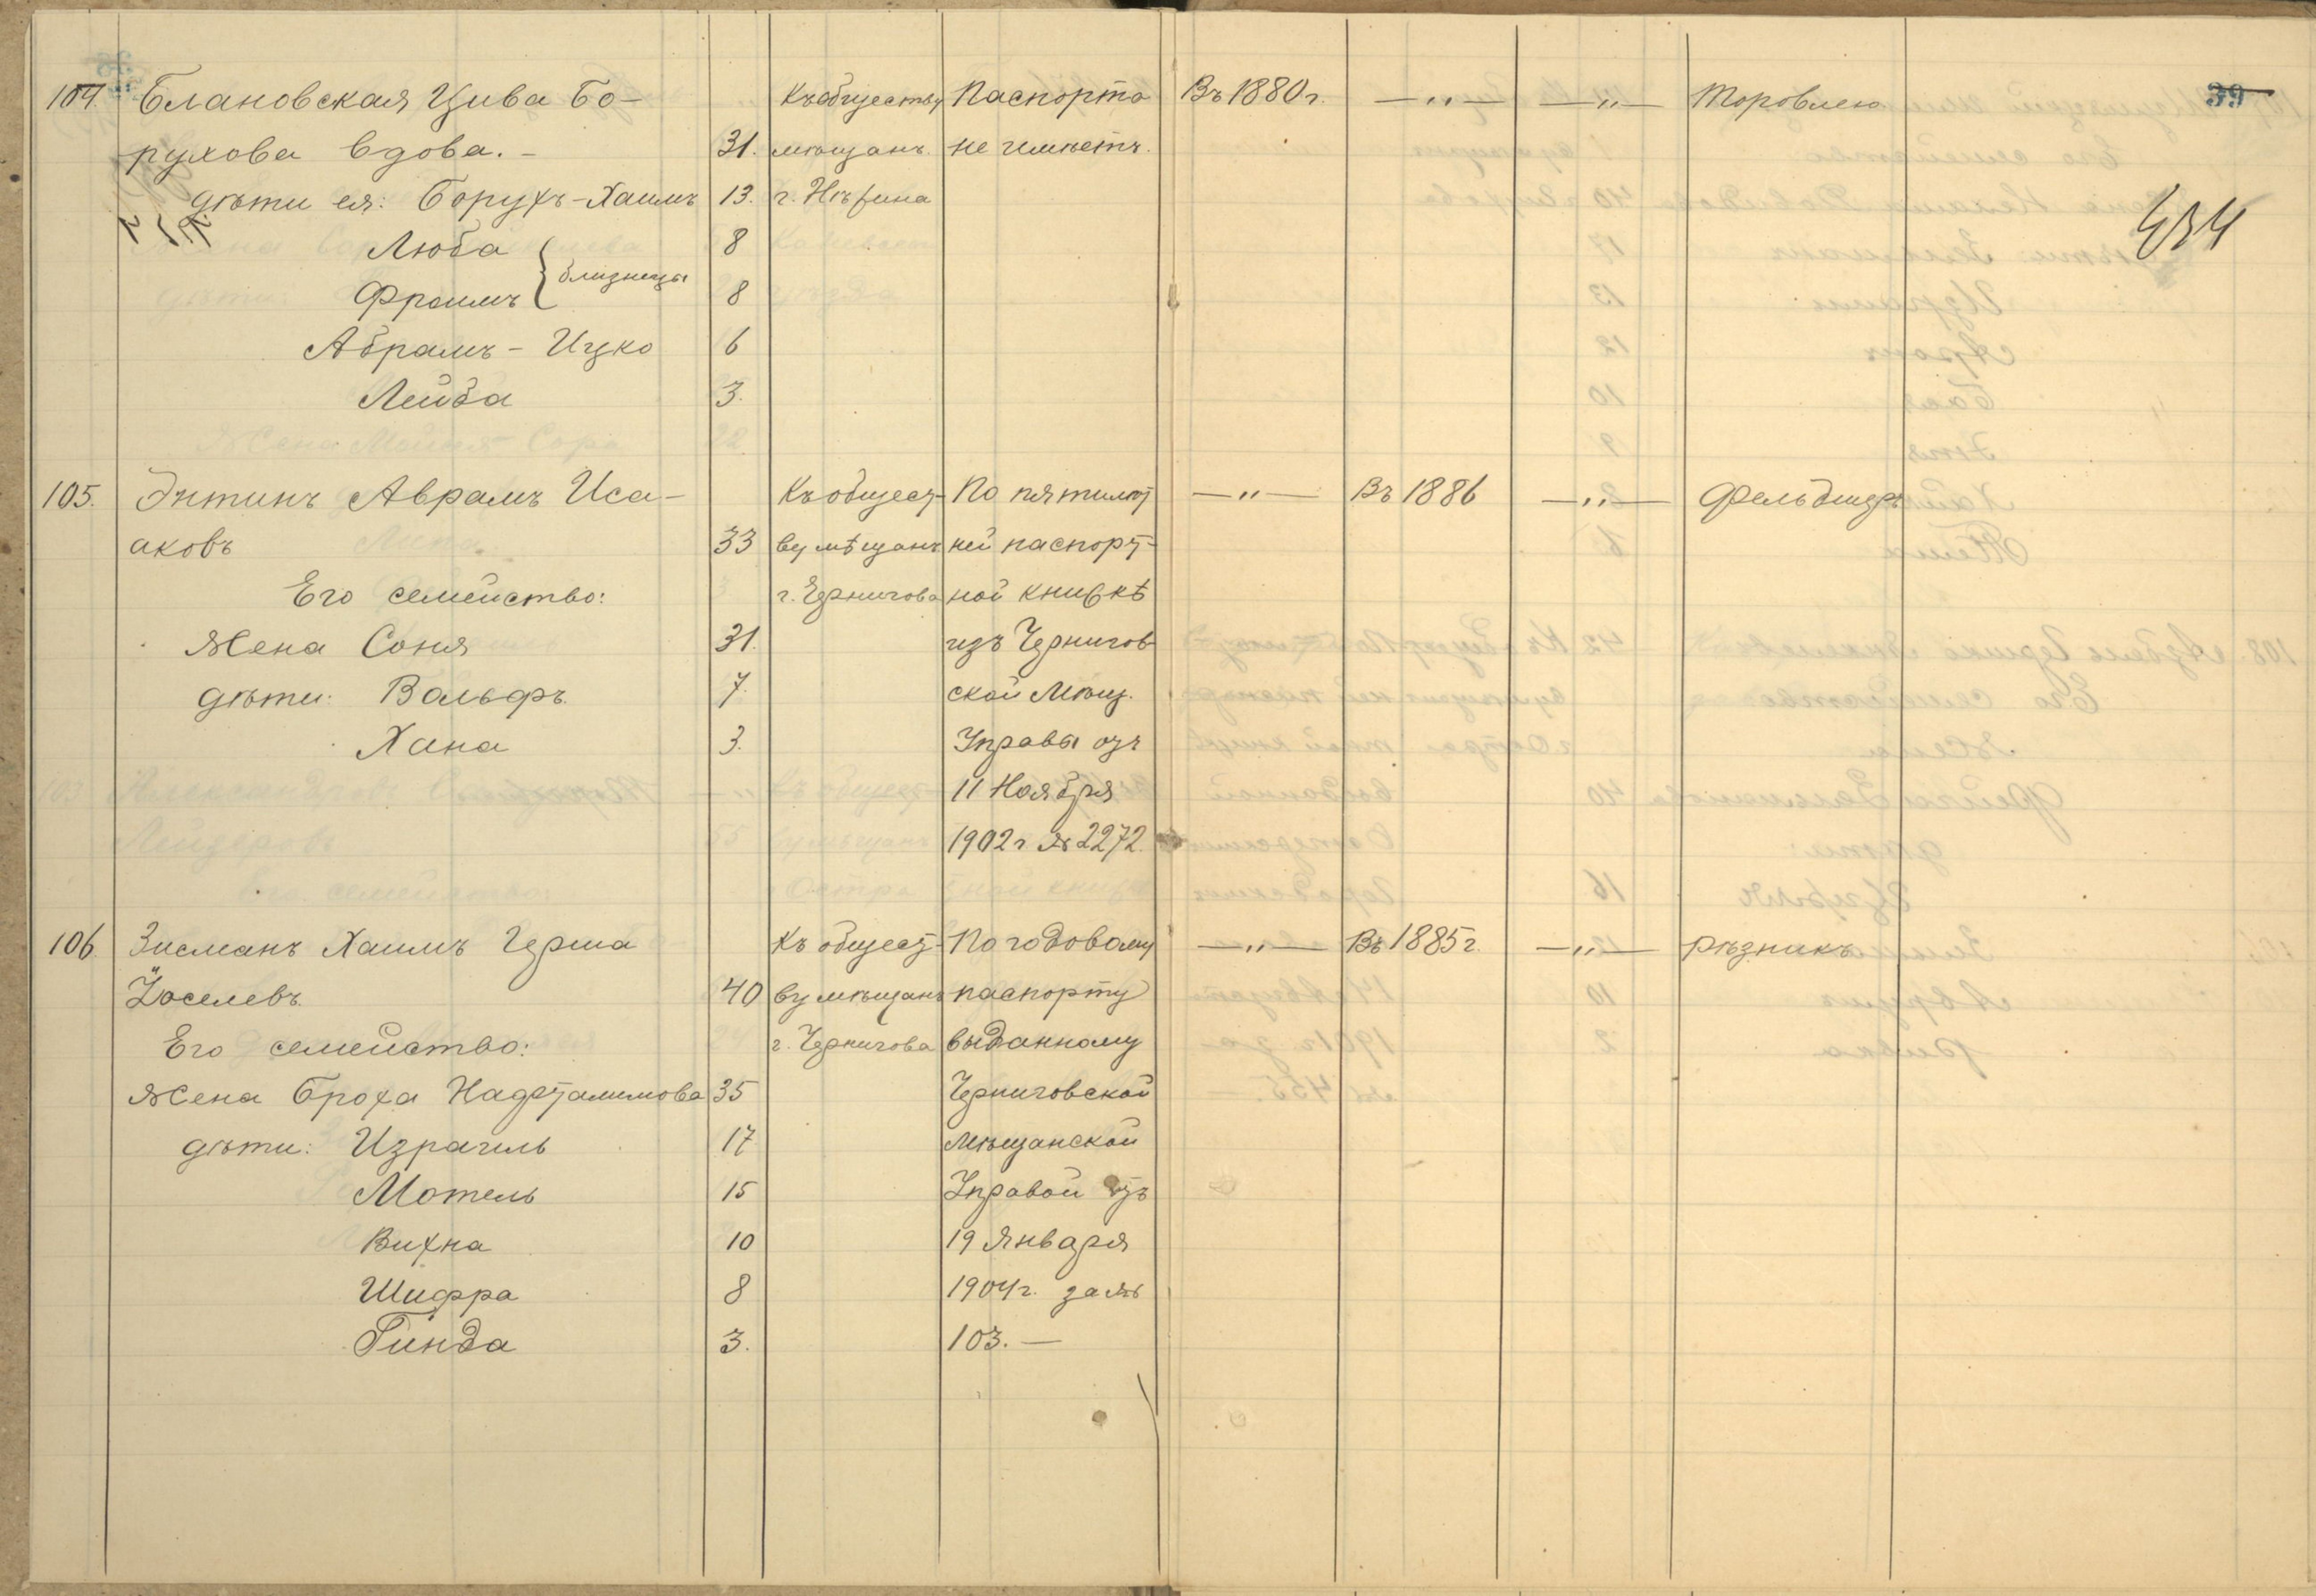 39
434
104. Блановская Цива Бо- Къ обществу Паспорта Въ 1880 г. —"— —"— Торговлею
рухова вдова. – 31. мѣщанъ не имѣетъ.
дѣти ея: Борухъ-Хаимъ 13. г. Нѣжина
Люба 8
близнецы
Фроимъ 8
Абрамъ - Ицко 6
Лейба 3.
105. Энтинъ Аврамъ Иса- Къ общест- По пятилѣт —"— Въ 1886 —"— Фельдшеръ
аковъ 33 ву мѣщанъ ней паспорт-
Его семейство: г. Чернигова ной книжкѣ
Жена Соня 31. изъ Чернигов-
дѣти: Вольфъ. 7. ской Мѣщ.
Хана 3. Управы отъ
11 Ноября
1902 г № 2272.
106. Зисманъ Хаимъ Герша Къ общест- По годовому —"— Въ 1885 г. —"— Рѣзникъ
Іоселевъ 40 ву мѣщанъ паспорту
Его семейство: г. Чернигова выданному
Жена Броха Нафталимова 35 Черниговской
дѣти: Израиль 17 Мѣщанской
Мотель 15 Управой отъ
Вихна 10 19 Января
Шифра 8 1904 г. за №
Гинда 3. 103. —